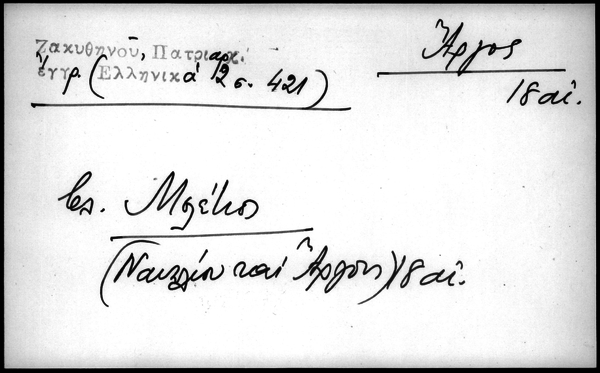 Ζακυθηνοῦ, Πατριαρχ.
ἔγγρ. (Ἑλληνικά 12 σ. 421)
Ἄργος
18 αἰ.
βλ. Μπέτσος
(Ναυπλίου καί Ἄργους) 18 αἰ.